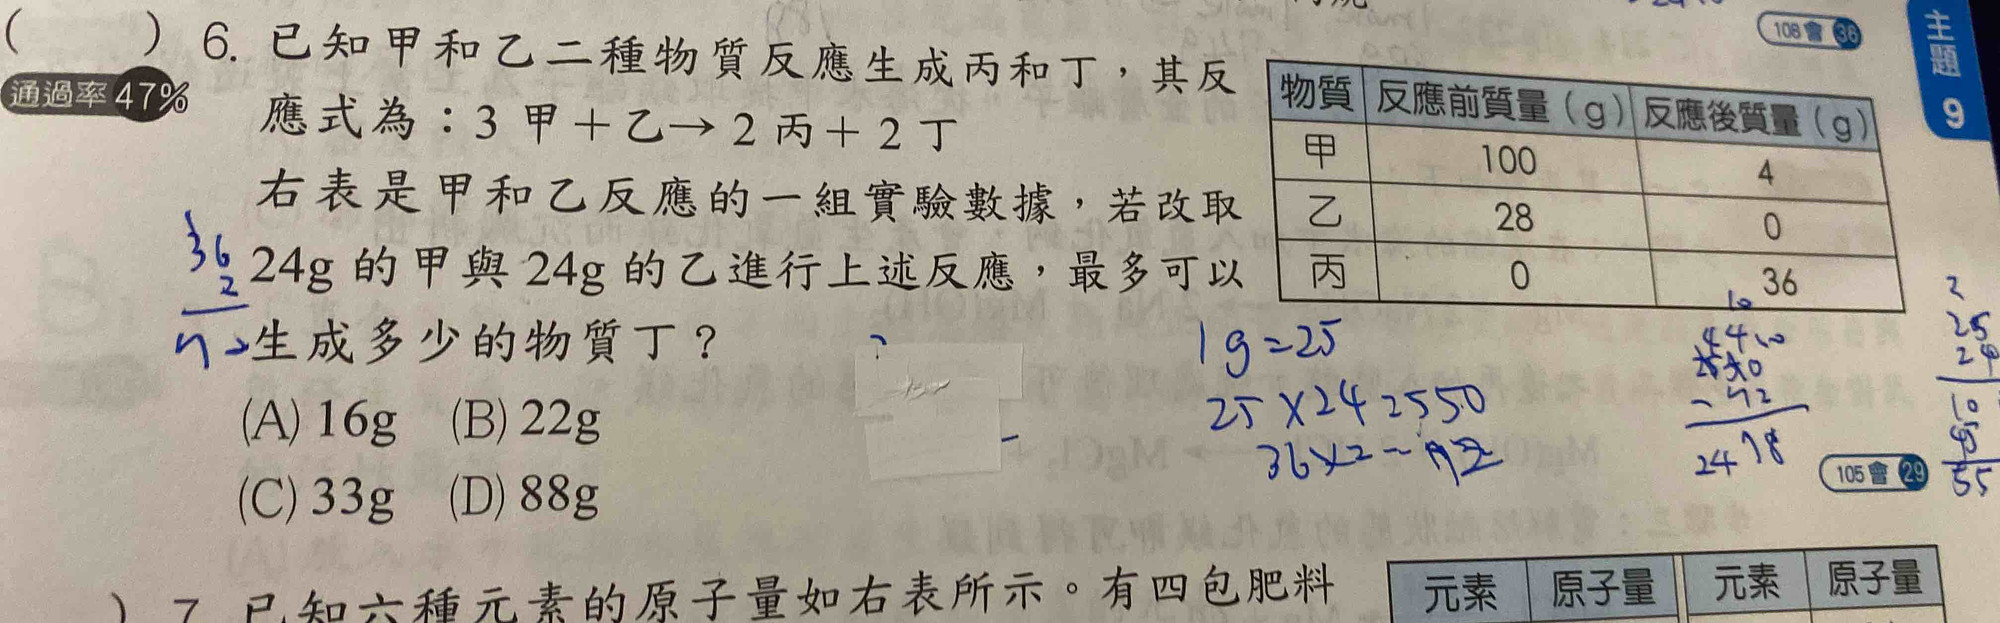 108會 36
主題 9
( ) 6. 已知甲和乙二種物質反應生成丙和丁，其反
通過率 47%
應式為：3 甲＋乙→ 2 丙＋ 2 丁
右表是甲和乙反應的一組實驗數據，若改取
24g 的甲與 24g 的乙進行上述反應，最多可以
生成多少的物質丁？
(A) 16g (B) 22g
(C) 33g (D) 88g
物質 反應前質量（g） 反應後質量（g）
甲 100 4
乙 28 0
丙 0 36
36
2
1g=25
25×24=550
36×2=72
2
25
24
55
105會 29
) 7. 已知六種元素的原子量如右表所示。有四包肥料
元素 原子量 元素 原子量